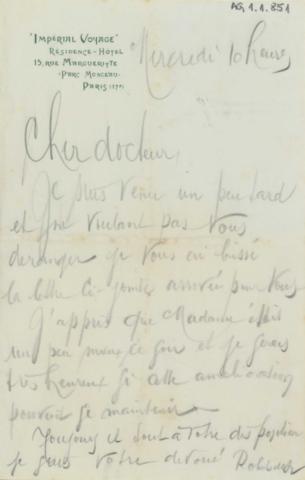 AG.1.1.851
"IMPERIAL VOYAGE"
RESIDENCE-HOTEL
15, RUE MARGUERITTE
(PARC MONCEAU)
PARIS (17e)
Mercredi 10 heures
Cher docteur,
Je suis venu un peu tard
et ne voulant pas vous
deranger je vous ai laissé
la lettre ci-jointe arrivée pour vous
J'appris que Madame était
un peu mieux ce soir et je serais
très heureux si cette amelioration
pouvait se maintenir
Toujours à votre disposition
je suis votre devoué